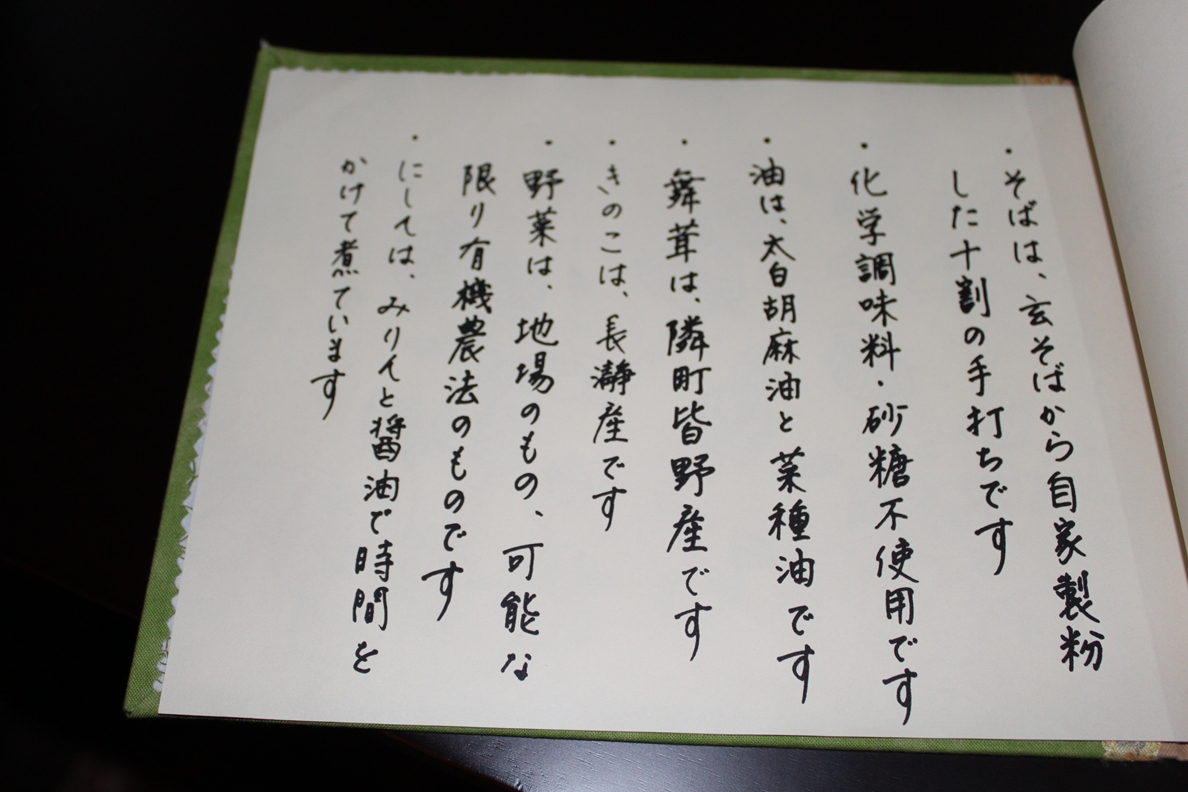 ・そばは、玄そばから自家製粉
した十割の手打ちです
・化学調味料・砂糖不使用です
・油は、太白胡麻油と菜種油です
・舞茸は、隣町皆野産です
・きのこは、長瀞産です
・野菜は、地場のもの、可能な
限り有機農法のものです
・にしんは、みりんと醤油で時間を
かけて煮ています